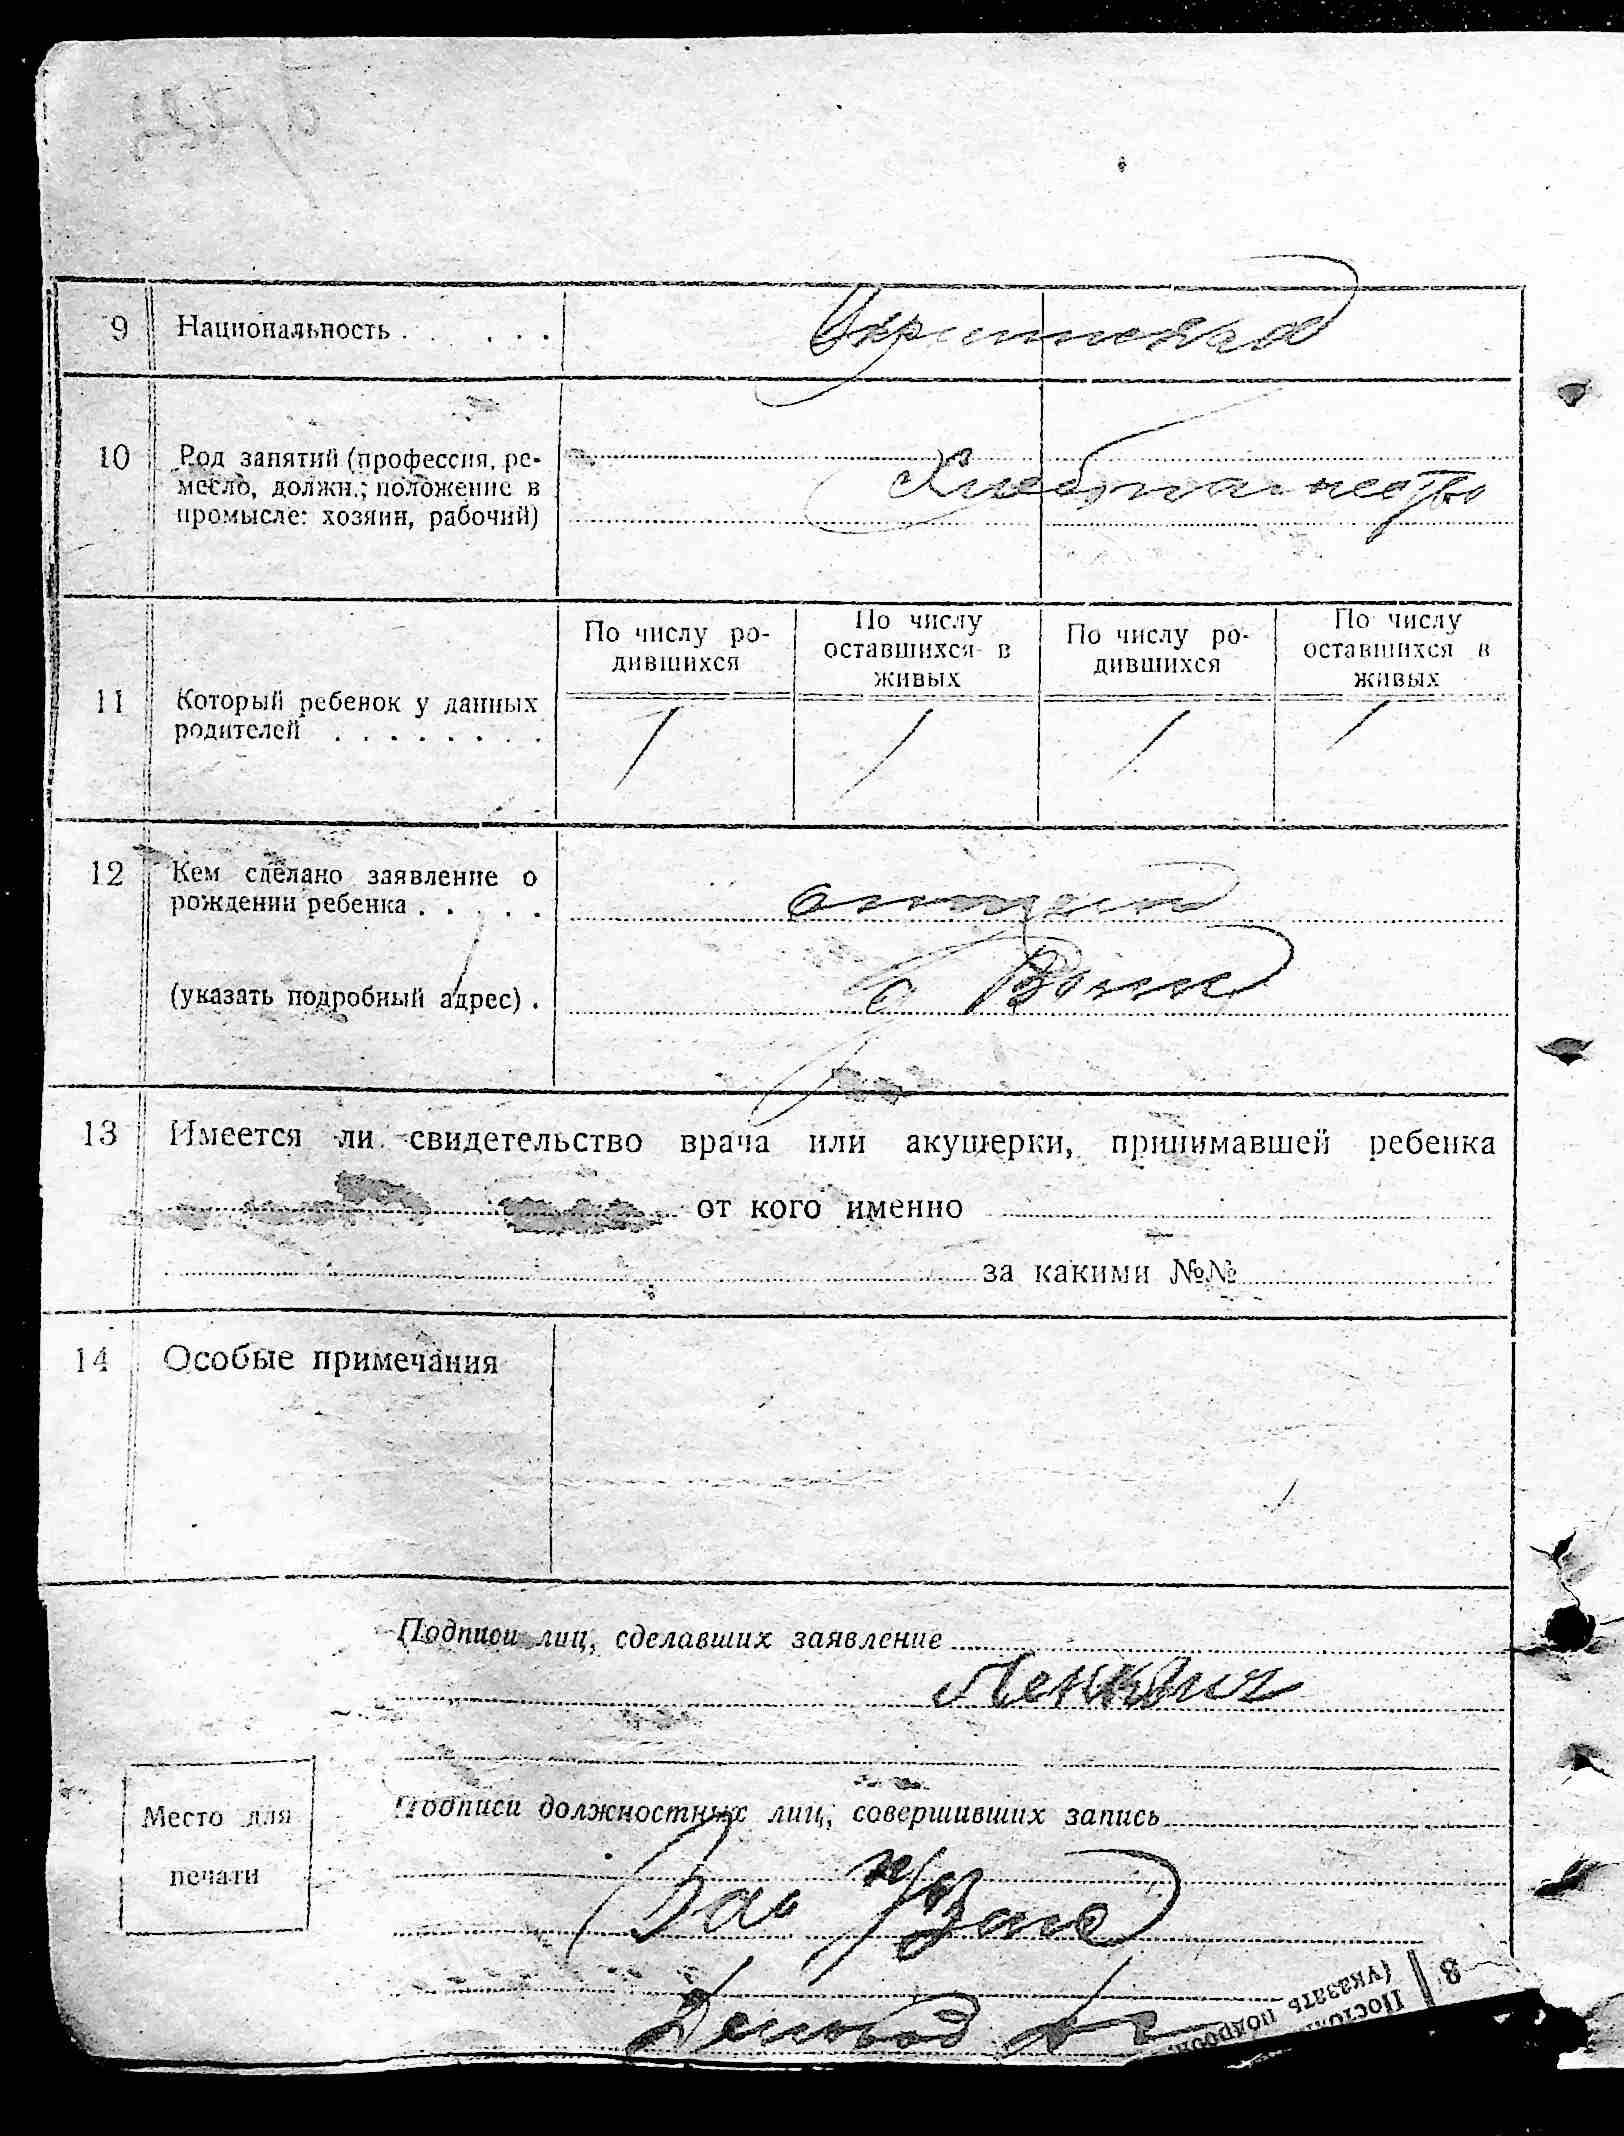 9 Национальность . . . . . .
10 Род занятий (профессия, ре-
месло, должн.; положение в
промысле: хозяин, рабочий)
Хлебопашество
По числу ро-
дившихся
По числу
оставшихся в
живых
По числу ро-
дившихся
По числу
оставшихся в
живых
11 Который ребенок у данных
родителей . . . . . . . .
1 1 1 1
12 Кем сделано заявление о
рождении ребенка . . . . .
(указать подробный адрес) .
13 Имеется ли свидетельство врача или акушерки, принимавшей ребенка
от кого именно
за какими №№
14 Особые примечания
Подписи лиц, сделавших заявление
Место для
печати
Подписи должностных лиц, совершивших запись
8
(указать подробн